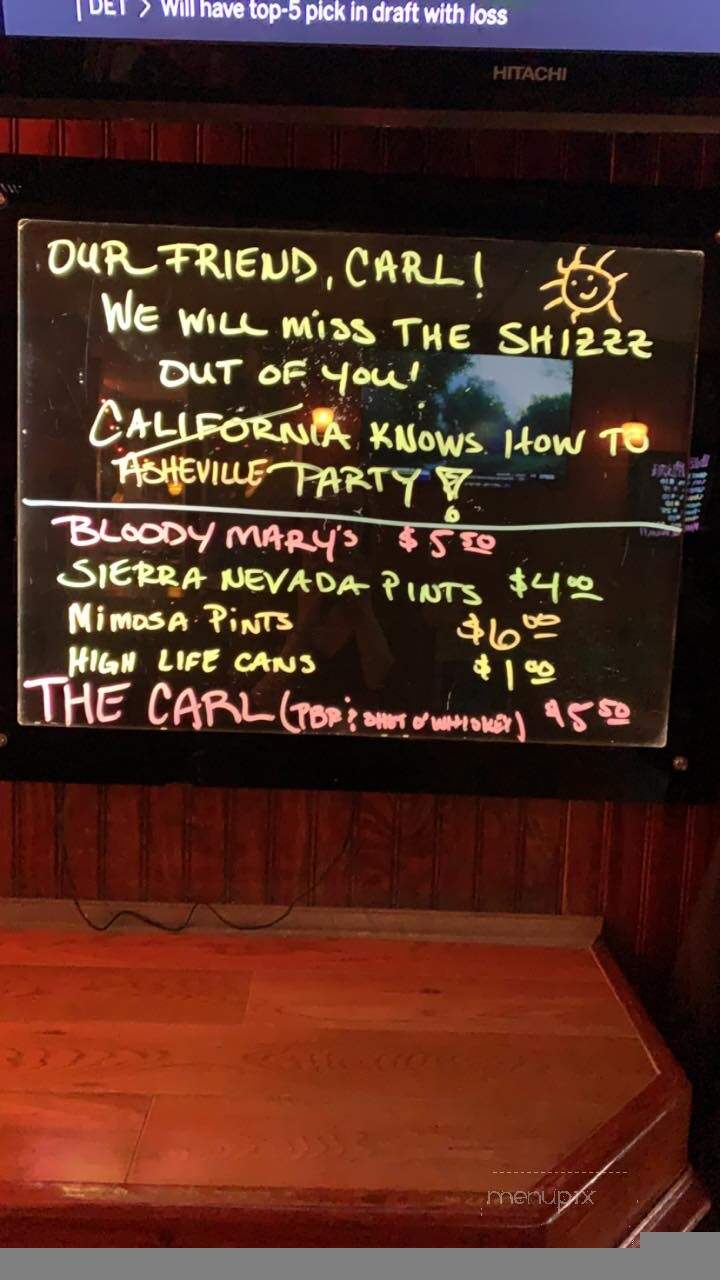 DET > Will have top-5 pick in draft with loss
HITACHI
OUR FRIEND, CARL!
WE WILL MISS THE SHIZZZ
OUT OF YOU!
CALIFORNIA KNOWS HOW TO
ASHEVILLE PARTY!
BLOODY MARY'S $5 50
SIERRA NEVADA PINTS $4 00
MIMOSA PINTS $6 00
HIGH LIFE CANS $1 00
THE CARL (PBR & SHOT O' WHISKEY) $5 50
menupix